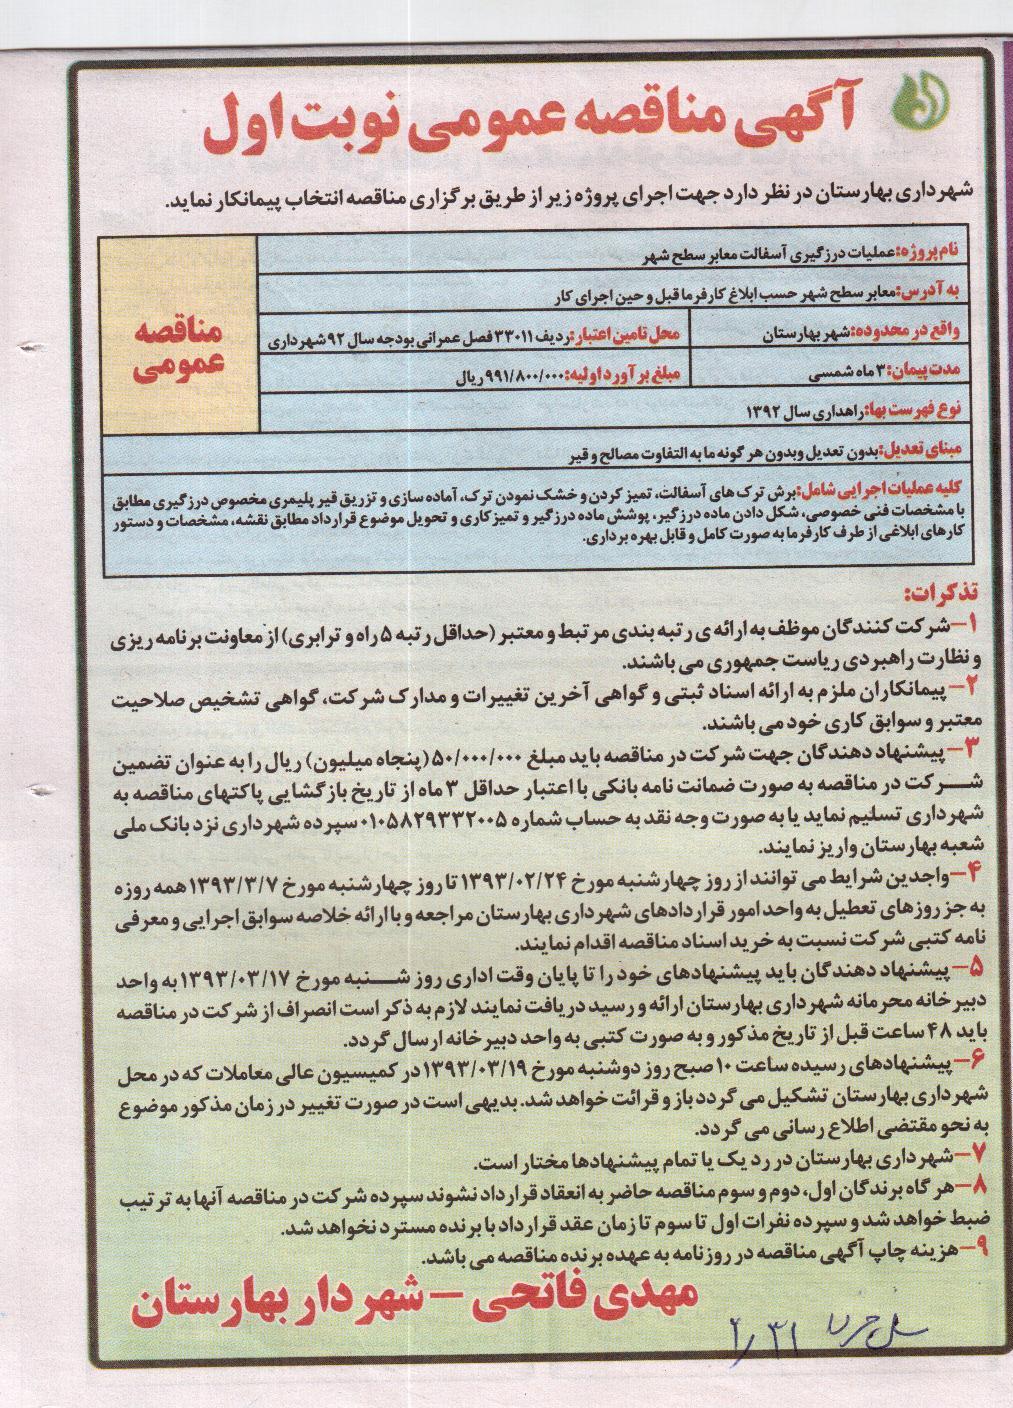 آگهی مناقصه عمومی نوبت اول
شهرداری بهارستان در نظر دارد جهت اجرای پروژه زیر از طریق برگزاری مناقصه انتخاب پیمانکار نماید.
مناقصه
عمومی
نام پروژه:عملیات درزگیری آسفالت معابر سطح شهر
به آدرس:معابر سطح شهر حسب ابلاغ کارفرما قبل و حین اجرای کار
واقع در محدوده:شهر بهارستان
محل تامین اعتبار:ردیف ۳۳۰۱۱ فصل عمرانی بودجه سال ۹۲ شهرداری
مدت پیمان:۳ ماه شمسی
مبلغ برآورد اولیه:۹۹۱/۸۰۰/۰۰۰ ریال
نوع فهرست بها:راهداری سال ۱۳۹۲
مبنای تعدیل:بدون تعدیل وبدون هر گونه ما به التفاوت مصالح و قیر
کلیه عملیات اجرایی شامل:برش ترک های آسفالت، تمیز کردن و خشک نمودن ترک، آماده سازی و تزریق قیر پلیمری مخصوص درزگیری مطابق
با مشخصات فنی خصوصی، شکل دادن ماده درزگیر، پوشش ماده درزگیر و تمیز کاری و تحویل موضوع قرارداد مطابق نقشه، مشخصات و دستور
کارهای ابلاغی از طرف کارفرما به صورت کامل و قابل بهره برداری.
تذکرات:
۱–شرکت کنندگان موظف به ارائه ی رتبه بندی مرتبط و معتبر (حداقل رتبه ۵ راه و ترابری) از معاونت برنامه ریزی
و نظارت راهبردی ریاست جمهوری می باشند.
۲– پیمانکاران ملزم به ارائه اسناد ثبتی و گواهی آخرین تغییرات و مدارک شرکت، گواهی تشخیص صلاحیت
معتبر و سوابق کاری خود می باشند.
۳–پیشنهاد دهندگان جهت شرکت در مناقصه باید مبلغ ۵۰/۰۰۰/۰۰۰ (پنجاه میلیون) ریال را به عنوان تضمین
شــرکت در مناقصه به صورت ضمانت نامه بانکی با اعتبار حداقل ۳ ماه از تاریخ بازگشایی پاکتهای مناقصه به
شهرداری تسلیم نماید یا به صورت وجه نقد به حساب شماره ۰۱۰۵۸۲۹۳۳۲۰۰۵ سپرده شهرداری نزد بانک ملی
شعبه بهارستان واریز نمایند.
۴–واجدین شرایط می توانند از روز چهارشنبه مورخ ۱۳۹۳/۰۲/۲۴ تا روز چهارشنبه مورخ ۱۳۹۳/۳/۷ همه روزه
به جز روزهای تعطیل به واحد امور قراردادهای شهرداری بهارستان مراجعه و با ارائه خلاصه سوابق اجرایی و معرفی
نامه کتبی شرکت نسبت به خرید اسناد مناقصه اقدام نمایند.
۵– پیشنهاد دهندگان باید پیشنهادهای خود را تا پایان وقت اداری روز شــنبه مورخ ۱۳۹۳/۰۳/۱۷ به واحد
دبیرخانه محرمانه شهرداری بهارستان ارائه و رسید دریافت نمایند لازم به ذکر است انصراف از شرکت در مناقصه
باید ۴۸ ساعت قبل از تاریخ مذکور و به صورت کتبی به واحد دبیرخانه ارسال گردد.
۶– پیشنهادهای رسیده ساعت ۱۰ صبح روز دوشنبه مورخ ۱۳۹۳/۰۳/۱۹ در کمیسیون عالی معاملات که در محل
شهرداری بهارستان تشکیل می گردد باز و قرائت خواهد شد. بدیهی است در صورت تغییر در زمان مذکور موضوع
به نحو مقتضی اطلاع رسانی می گردد.
۷–شهرداری بهارستان در رد یک یا تمام پیشنهادها مختار است.
۸–هر گاه برندگان اول، دوم و سوم مناقصه حاضر به انعقاد قرارداد نشوند سپرده شرکت در مناقصه آنها به ترتیب
ضبط خواهد شد و سپرده نفرات اول تا سوم تا زمان عقد قرارداد با برنده مسترد نخواهد شد.
۹–هزینه چاپ آگهی مناقصه در روزنامه به عهده برنده مناقصه می باشد.
مهدی فاتحی – شهردار بهارستان